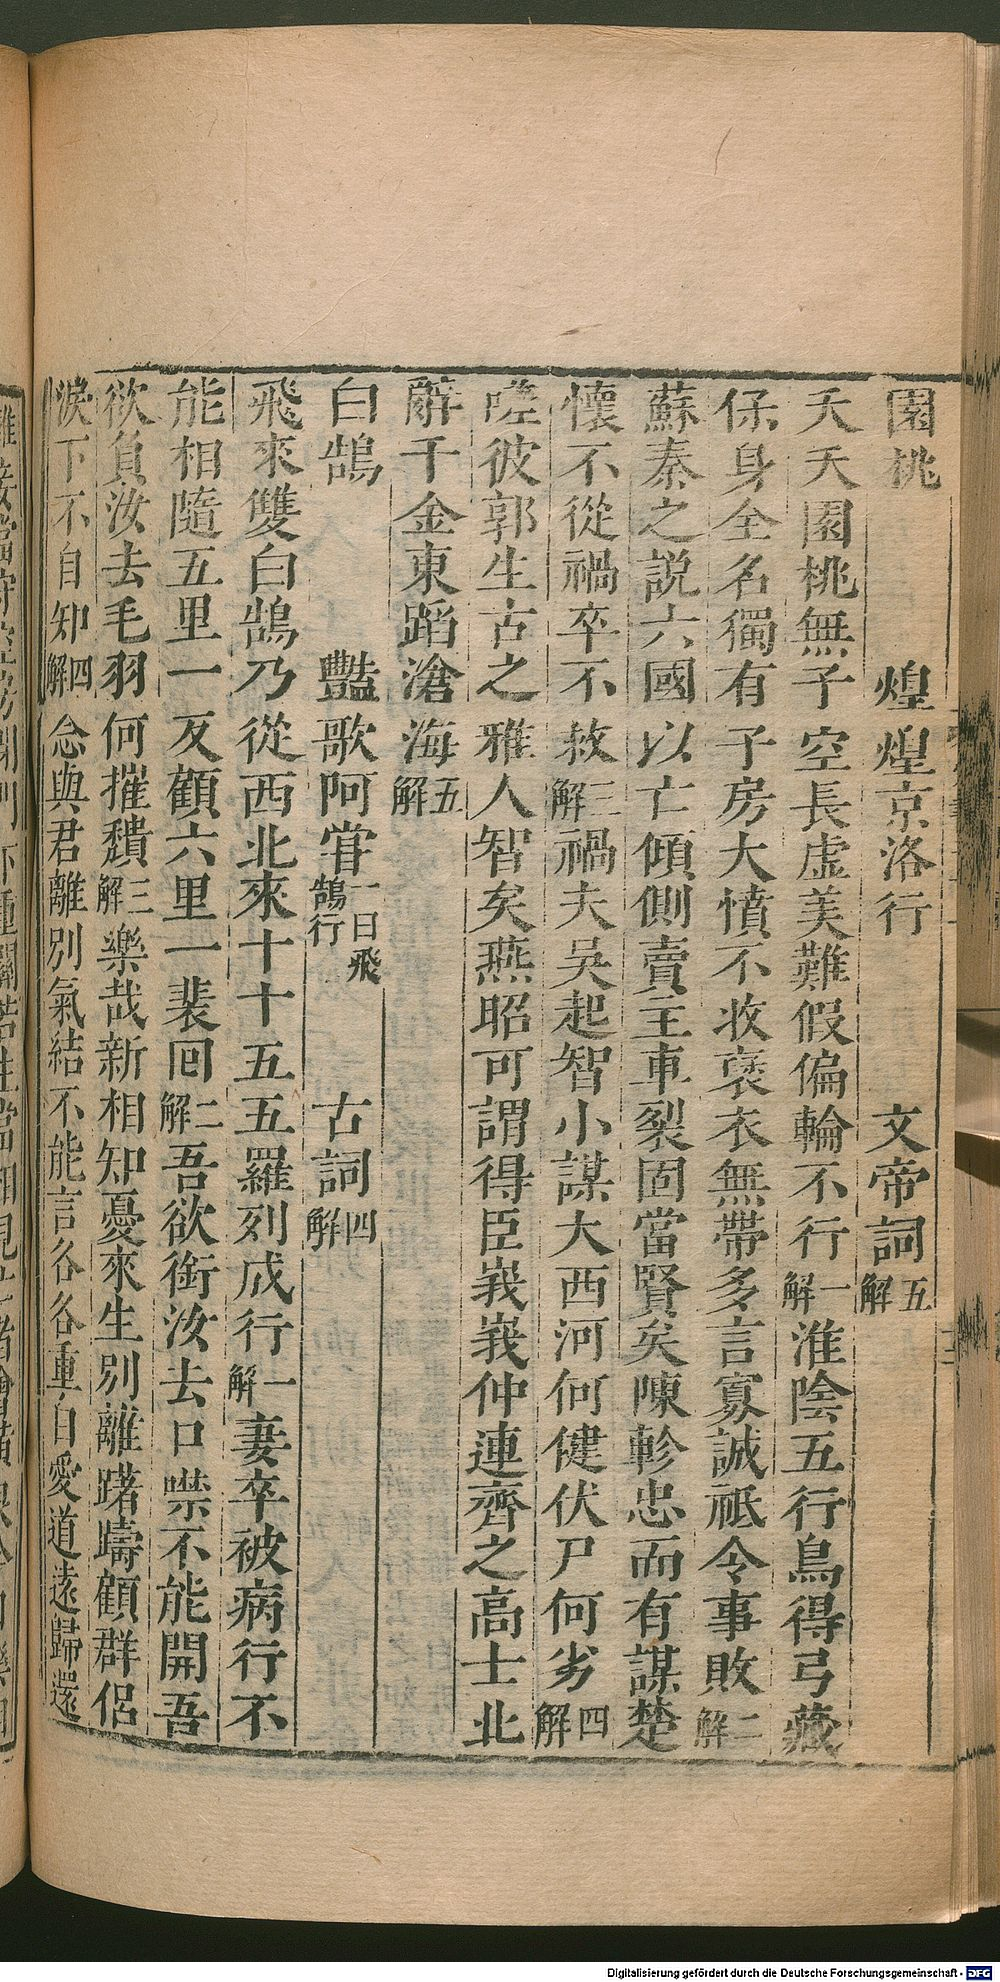 園桃 煌煌京洛行 文帝詞五解
夭夭園桃無子空長虛美難假偏輪不行一解淮陰五行鳥得弓藏
保身全名獨有子房大憤不收褒衣無帶多言寡誠祗令事敗二解
蘇秦之說六國以亡傾側賣主車裂固當賢矣陳軫忠而有謀楚
懷不從禍卒不救三解禍夫吳起智小謀大西河何健伏尸何劣四解
嗟彼郭生古之雅人智矣燕昭可謂得臣峩峩仲連齊之高士北
辭千金東蹈滄海五解
白鵠 豔歌何嘗一曰飛鵠行 古詞四解
飛來雙白鵠乃從西北來十十五五羅列成行一解妻卒被病行不
能相隨五里一反顧六里一裴回二解吾欲銜汝去口噤不能開吾
欲負汝去毛羽何摧頹三解樂哉新相知憂來生別離躇躊顧群侶
淚下不自知四解念與君離別氣結不能言各各重自愛道遠歸還
Digitalisierung gefördert durch die Deutsche Forschungsgemeinschaft - DFG